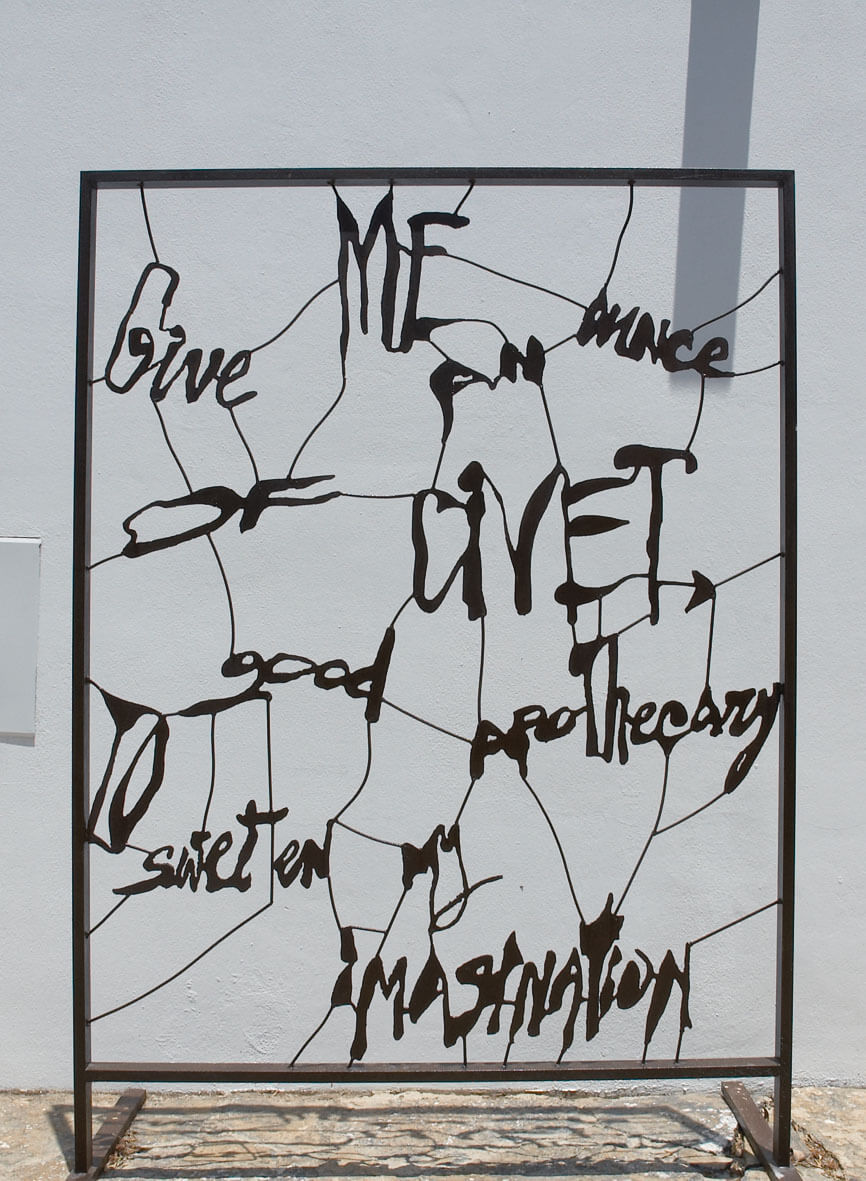 Give ME AN ounce
OF CIVET
good apothecary
TO sweeten my
imagination